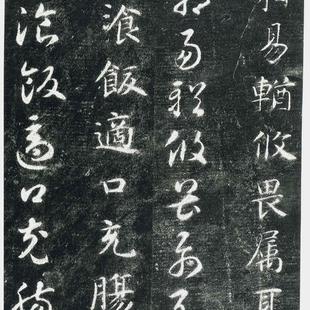 易輶攸畏屬耳
易輶攸畏屬耳
飡飯適口充腸
飡飯適口充腸